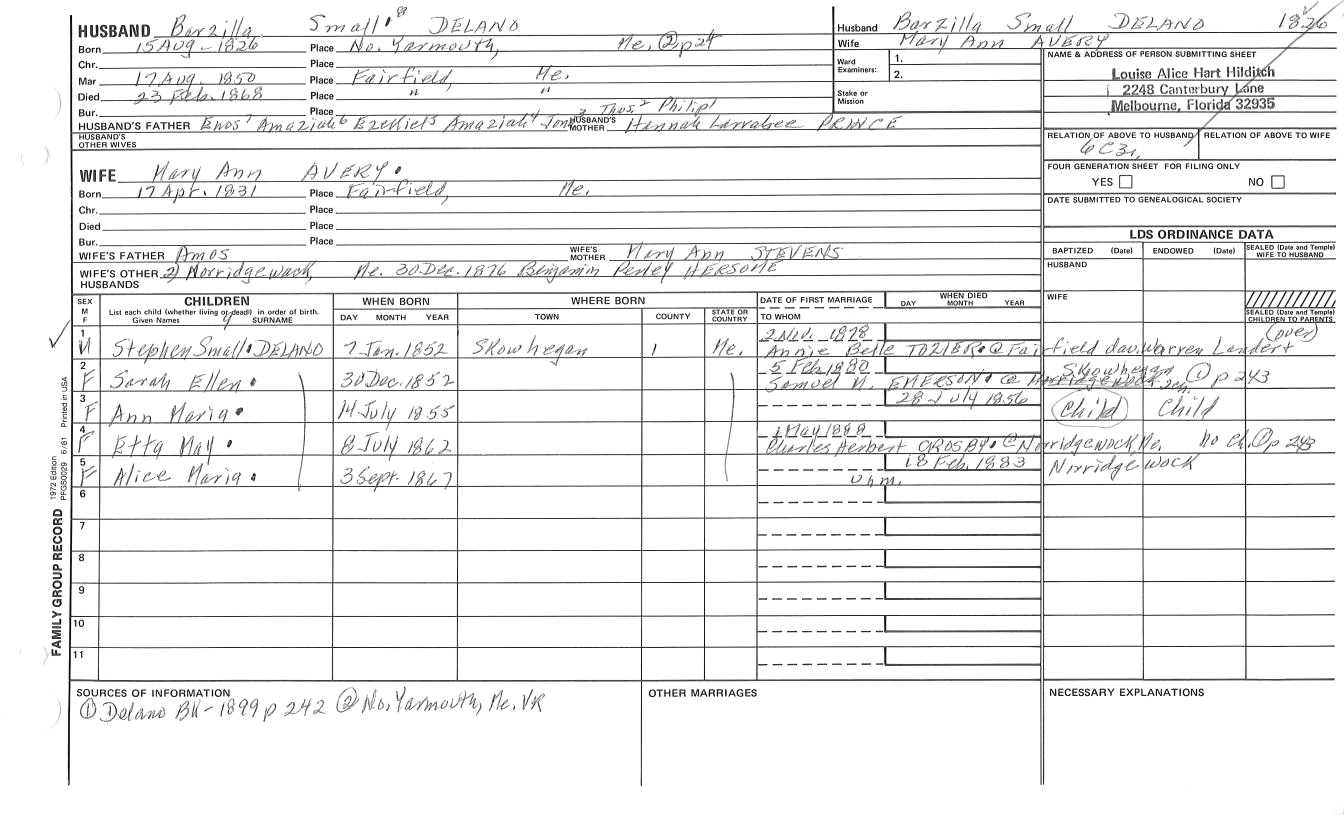 HUSBAND Barzilla Small 8 DELANO
Born 15 Aug - 1826 Place No. Yarmouth, Me. ② p 24
Chr. Place
Mar 17 Aug. 1850 Place Fairfield, Me.
Died 23 Feb. 1868 Place " "
Bur. Place
HUSBAND'S FATHER Enos 7 Amaziah 6 Ezekiel 5 Amaziah 4 Jona 3 Thos. 2 Philip 1 HUSBAND'S MOTHER Hannah Larrabee PRINCE
HUSBAND'S OTHER WIVES
WIFE Mary Ann AVERY
Born 17 Apr. 1831 Place Fairfield, Me.
Chr. Place
Died Place
Bur. Place
WIFE'S FATHER Amos WIFE'S MOTHER Mary Ann STEVENS
WIFE'S OTHER HUSBANDS 2) Norridgewock, Me. 30 Dec. 1876 Benjamin Perley HERSOME
Husband Barzilla Small DELANO 1826
Wife Mary Ann AVERY
Ward Examiners: 1.
2.
Stake or Mission
NAME & ADDRESS OF PERSON SUBMITTING SHEET
Louise Alice Hart Hilditch
2248 Canterbury Lane
Melbourne, Florida 32935
RELATION OF ABOVE TO HUSBAND RELATION OF ABOVE TO WIFE
6C3r
FOUR GENERATION SHEET FOR FILING ONLY
YES NO
DATE SUBMITTED TO GENEALOGICAL SOCIETY
LDS ORDINANCE DATA
BAPTIZED (Date) ENDOWED (Date) SEALED (Date and Temple) WIFE TO HUSBAND
HUSBAND
WIFE
SEALED (Date and Temple) CHILDREN TO PARENTS
SEX M F CHILDREN WHEN BORN WHERE BORN DATE OF FIRST MARRIAGE WHEN DIED
List each child (whether living or dead) in order of birth. Given Names SURNAME DAY MONTH YEAR TOWN COUNTY STATE OR COUNTRY TO WHOM DAY MONTH YEAR
9
1 M Stephen Small DELANO 7 Jan. 1852 Skowhegan Me. 2 Nov. 1878 (over)
Annie Belle TOZIER @ Fairfield dau. Warren Landert
2 F Sarah Ellen 30 Dec. 1852 5 Feb 1880 Skowhegan
Samuel N. EMERSON @ Norridgewock ① p 243
3 F Ann Maria 14 July 1855 28 July 1856 Child Child
4 F Etta May 8 July 1862 1 May 1888
Charles Herbert CROSBY @ Norridgewock, Me. No Ch. ① p 243
5 F Alice Maria 3 Sept. 1867 18 Feb. 1883 Norridgewock
unm.
6
7
8
9
10
11
FAMILY GROUP RECORD 1972 Edition PFGS0029 6/81 Printed in USA
SOURCES OF INFORMATION OTHER MARRIAGES NECESSARY EXPLANATIONS
① Delano BK - 1899 p 242 ② No. Yarmouth, Me. VR